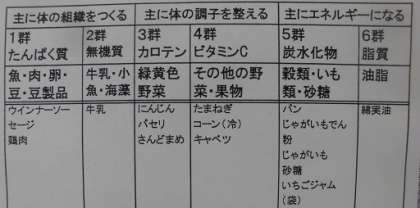 主に体の組織をつくる 主に体の調子を整える 主にエネルギーになる
1群 2群 3群 4群 5群 6群
たんぱく質 無機質 カロテン ビタミンC 炭水化物 脂質
魚・肉・卵・ 牛乳・小 緑黄色 その他の野 穀類・いも 油脂
豆・豆製品 魚・海藻 野菜 菜・果物 類・砂糖
ウインナーソー 牛乳 にんじん たまねぎ パン 綿実油
セージ パセリ コーン(冷) じゃがいもでん
鶏肉 さんどまめ キャベツ 粉
じゃがいも
砂糖
いちごジャム
(袋)